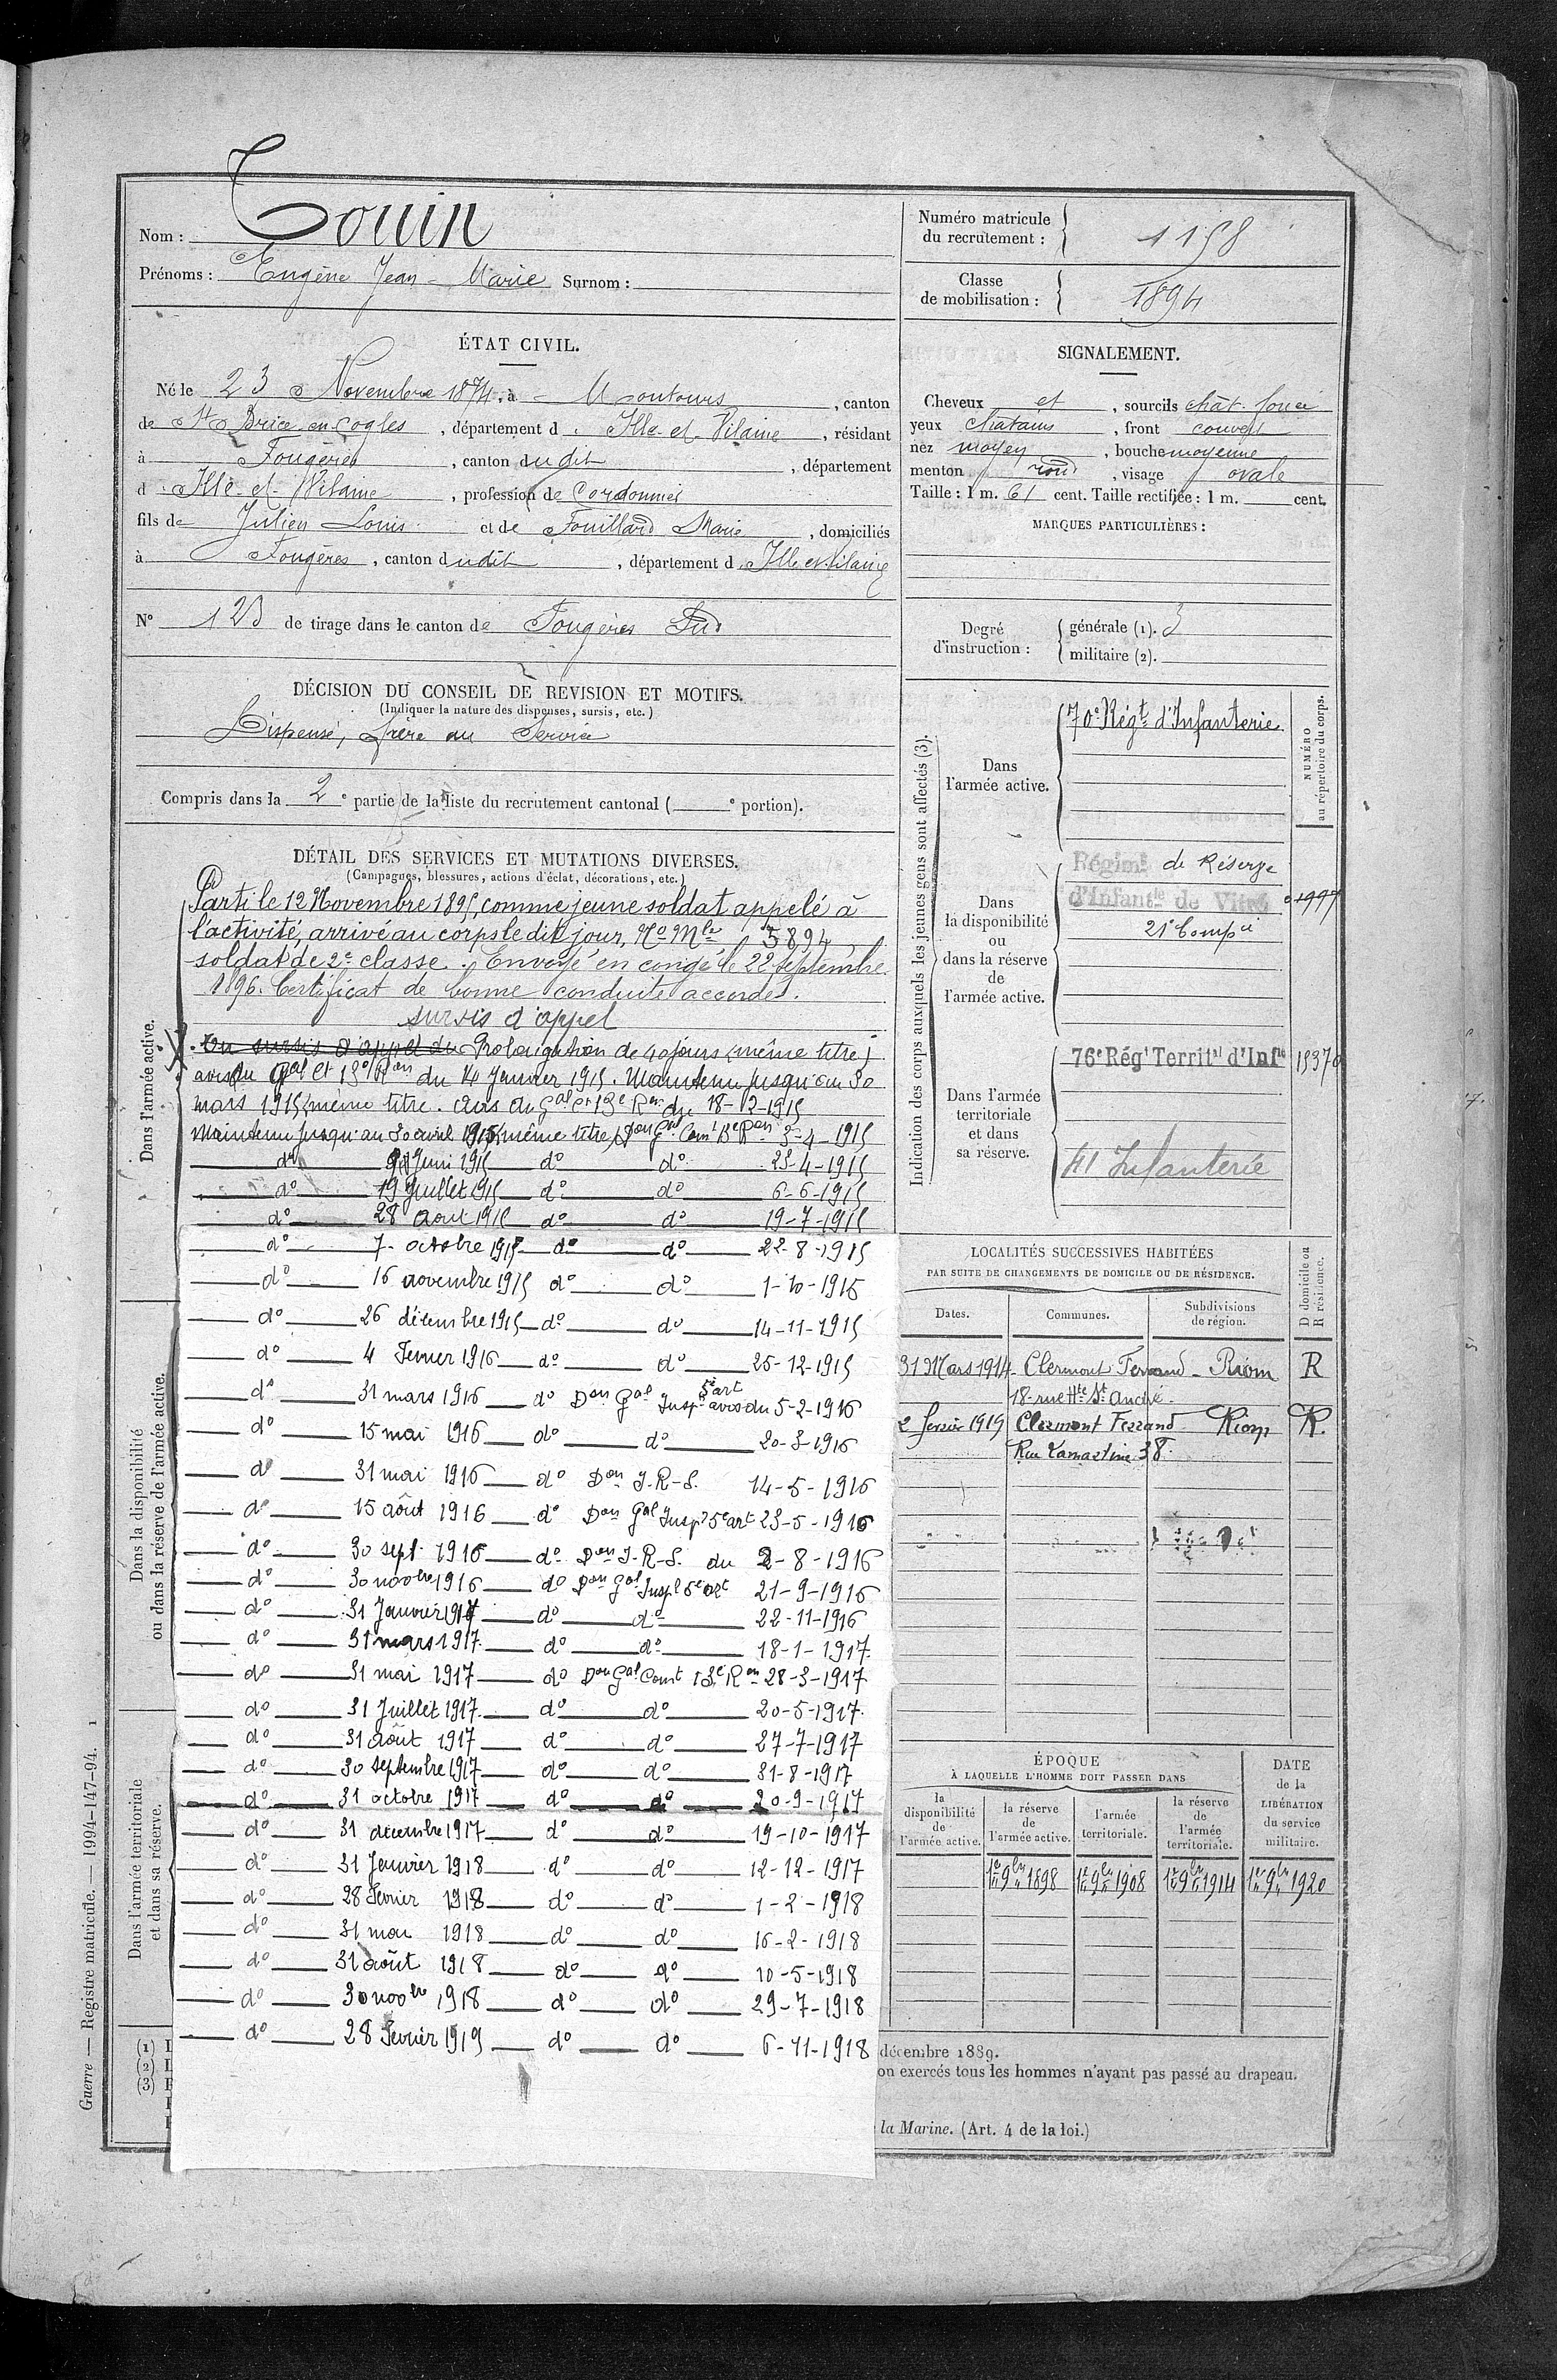 Nom : Touin
Prénoms : Eugène Jean-Marie Surnom :
Numéro matricule du recrutement : 1158
Classe de mobilisation : 1894
ÉTAT CIVIL.
Né le 23 Novembre 1874, à Montours, canton
de St Brice en Cogles, département d'Ille-et-Vilaine, résidant
à Fougères, canton dudit, département
d'Ille-et-Vilaine, profession de Cordonnier
fils de Julien Louis et de Fouillard Marie, domiciliés
à Fougères, canton dudit, département d'Ille et Vilaine
N° 123 de tirage dans le canton de Fougères Sud
SIGNALEMENT.
Cheveux et, sourcils chât. foncé
yeux chatains, front couvert
nez moyen, bouche moyenne
menton rond, visage ovale
Taille : 1 m. 61 cent. Taille rectifiée : 1 m. cent.
MARQUES PARTICULIÈRES :
Degré d'instruction : générale (1). 3
militaire (2).
DÉCISION DU CONSEIL DE REVISION ET MOTIFS.
(Indiquer la nature des dispenses, sursis, etc.)
Dispensé, frère au Service
Compris dans la 2e partie de la liste du recrutement cantonal ( e portion).
DÉTAIL DES SERVICES ET MUTATIONS DIVERSES.
(Campagnes, blessures, actions d'éclat, décorations, etc.)
Dans l'armée active.
Parti le 12 Novembre 1895, comme jeune soldat appelé à
l'activité, arrivé au corps le dit jour, No Mle 5894
soldat de 2e classe. Envoyé en congé le 22 septembre
1896. Certificat de bonne conduite accordé.
sursis d'appel
Un sursis d'appel du Prolongation de 40 jours (même titre)
avis du Gal Ct 13e Ron du 14 Janvier 1915. Maintenu jusqu'au 30
mars 1915 même titre. avis du Gal Ct 13e Ron du 18-2-1915
Maintenu jusqu'au 30 avril 1915 même titre Don Gal Comt 13e Ron 3-4-1915
do Juin 1915 do do 23-4-1915
do 19 Juillet 1915 do do 6-6-1915
do 28 Aout 1915 do do 19-7-1915
do 7 octobre 1915 do do 22-8-1915
do 16 novembre 1915 do do 1-10-1915
do 26 décembre 1915 do do 14-11-1915
do 4 Fevrier 1916 do do 25-12-1915
do 31 mars 1916 do Don Gal Inspr 5e art avis du 5-2-1916
do 15 mai 1916 do do 20-3-1916
do 31 mai 1916 do Don I-R-S. 14-5-1916
do 15 août 1916 do Don Gal Inspr 5e art 23-5-1916
do 30 sept. 1916 do Don I-R-S. du 2-8-1916
do 30 novbre 1916 do Don Gal Inspr 5e art 21-9-1916
do 31 Janvier 1917 do do 22-11-1916
do 31 mars 1917 do do 18-1-1917
do 31 mai 1917 do Don Gal Comt 13e Ron 28-3-1917
do 31 Juillet 1917 do do 20-5-1917
do 31 août 1917 do do 27-7-1917
do 30 Septembre 1917 do do 31-8-1917
do 31 octobre 1917 do do 20-9-1917
do 31 décembre 1917 do do 19-10-1917
do 31 Janvier 1918 do do 12-12-1917
do 28 Fevrier 1918 do do 1-2-1918
do 31 mai 1918 do do 16-2-1918
do 31 août 1918 do do 10-5-1918
do 30 novbre 1918 do do 29-7-1918
do 28 Fevrier 1919 do do 6-11-1918
Dans la disponibilité ou dans la réserve de l'armée active.
Dans l'armée territoriale et dans sa réserve.
Indication des corps auxquels les jeunes gens sont affectés (3).
NUMÉRO au répertoire du corps.
Dans l'armée active.
70e Régt d'Infanterie
Dans la disponibilité ou dans la réserve de l'armée active.
Régimt de Réserve
d'Infantie de Vitré 1997
21e Compie
Dans l'armée territoriale et dans sa réserve.
76e Régt Territal d'Infie 15370
41 Infanterie
LOCALITÉS SUCCESSIVES HABITÉES
PAR SUITE DE CHANGEMENTS DE DOMICILE OU DE RÉSIDENCE.
D domicile ou R résidence.
Dates. Communes. Subdivisions de région.
31 Mars 1914 Clermont Ferrand Riom R
18 rue Hte St André
2 Fevrier 1919 Clermont Ferrand Riom R.
Rue Lamartine 38
ÉPOQUE
À LAQUELLE L'HOMME DOIT PASSER DANS
DATE de la LIBÉRATION du service militaire.
la disponibilité de l'armée active.
la réserve de l'armée active.
l'armée territoriale.
la réserve de l'armée territoriale.
1er 9bre 1898 1er 9bre 1908 1er 9bre 1914 1er 9bre 1920
(1)
(2)
(3)
décembre 1889.
on exercés tous les hommes n'ayant pas passé au drapeau.
la Marine. (Art. 4 de la loi.)
Guerre — Registre matricule. — 1994-147-94. 1